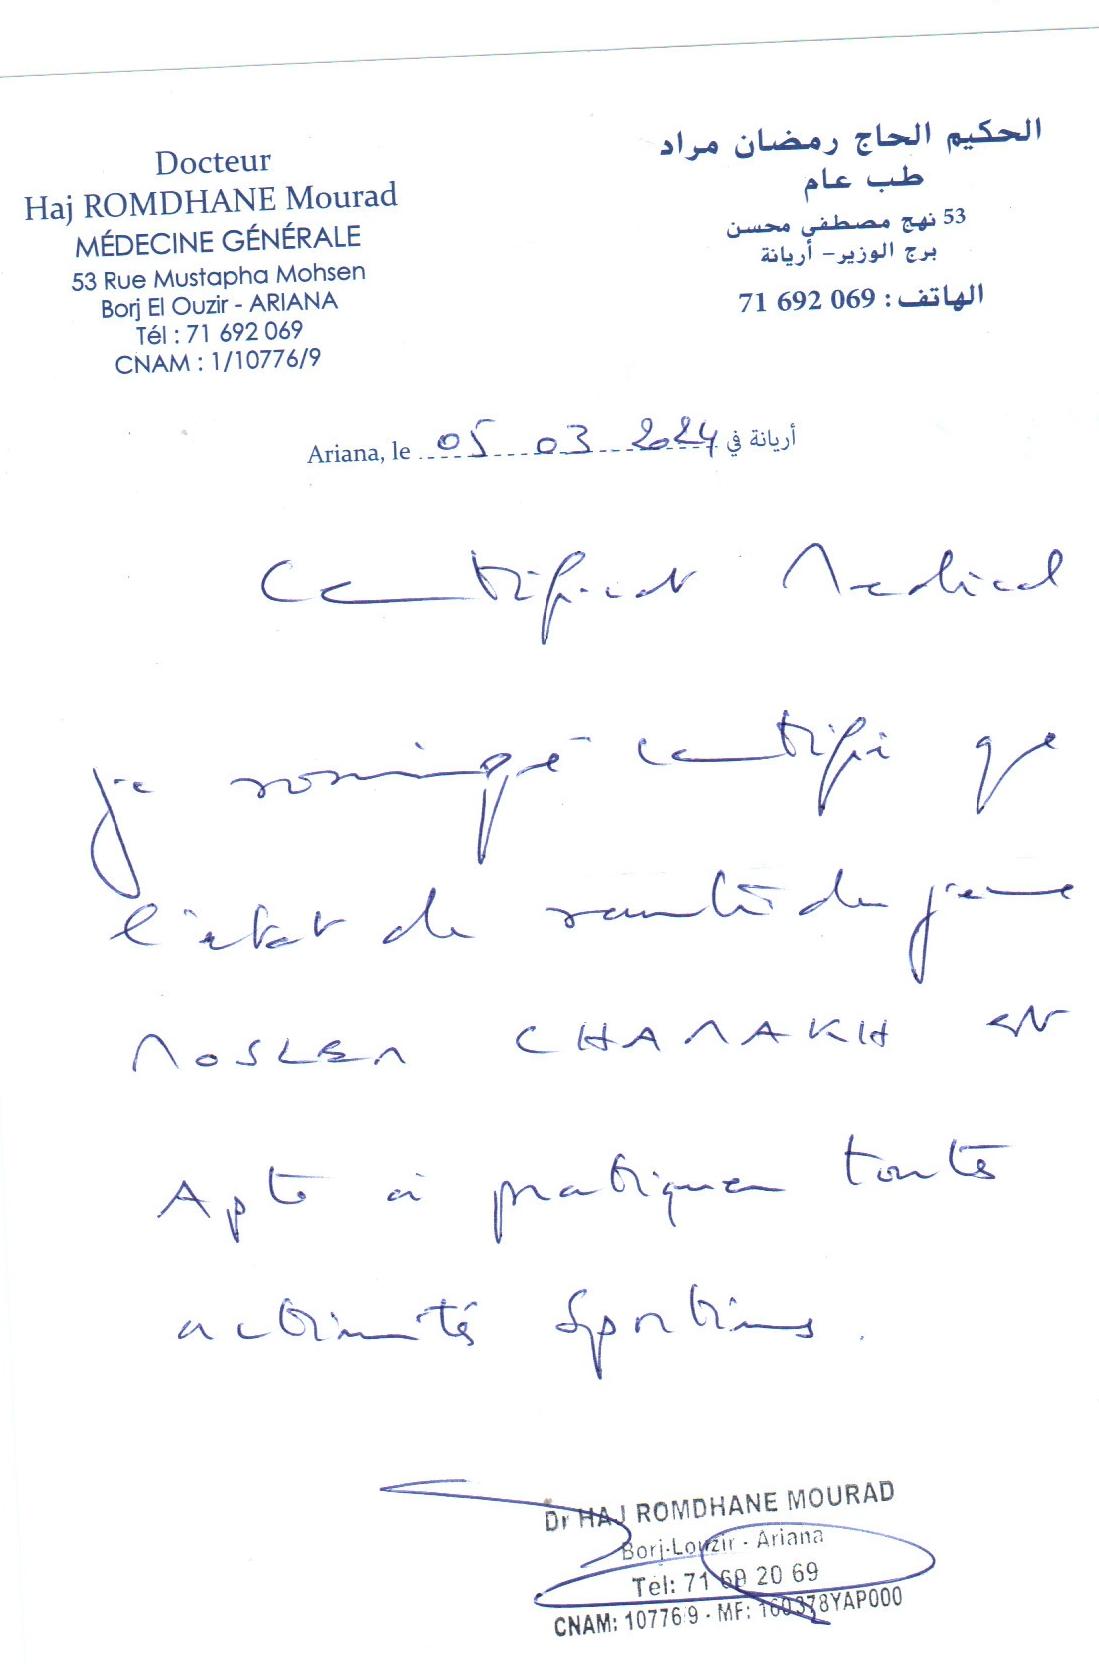 Docteur
Haj ROMDHANE Mourad
MÉDECINE GÉNÉRALE
53 Rue Mustapha Mohsen
Borj El Ouzir - ARIANA
Tél : 71 692 069
CNAM : 1/10776/9
الحكيم الحاج رمضان مراد
طب عام
53 نهج مصطفى محسن
برج الوزير– أريانة
الهاتف : 069 692 71
Ariana, le 05 03 2024 أريانة في
Certificat Medical
je soussigné certifie que
l'état de santé du jeune
MOSLEM CHAMAKH est
Apte à pratiquer toutes
activités Sportives.
Dr HAJ ROMDHANE MOURAD
Borj-Louzir - Ariana
Tél: 71 69 20 69
CNAM: 10776/9 - MF: 160378YAP000